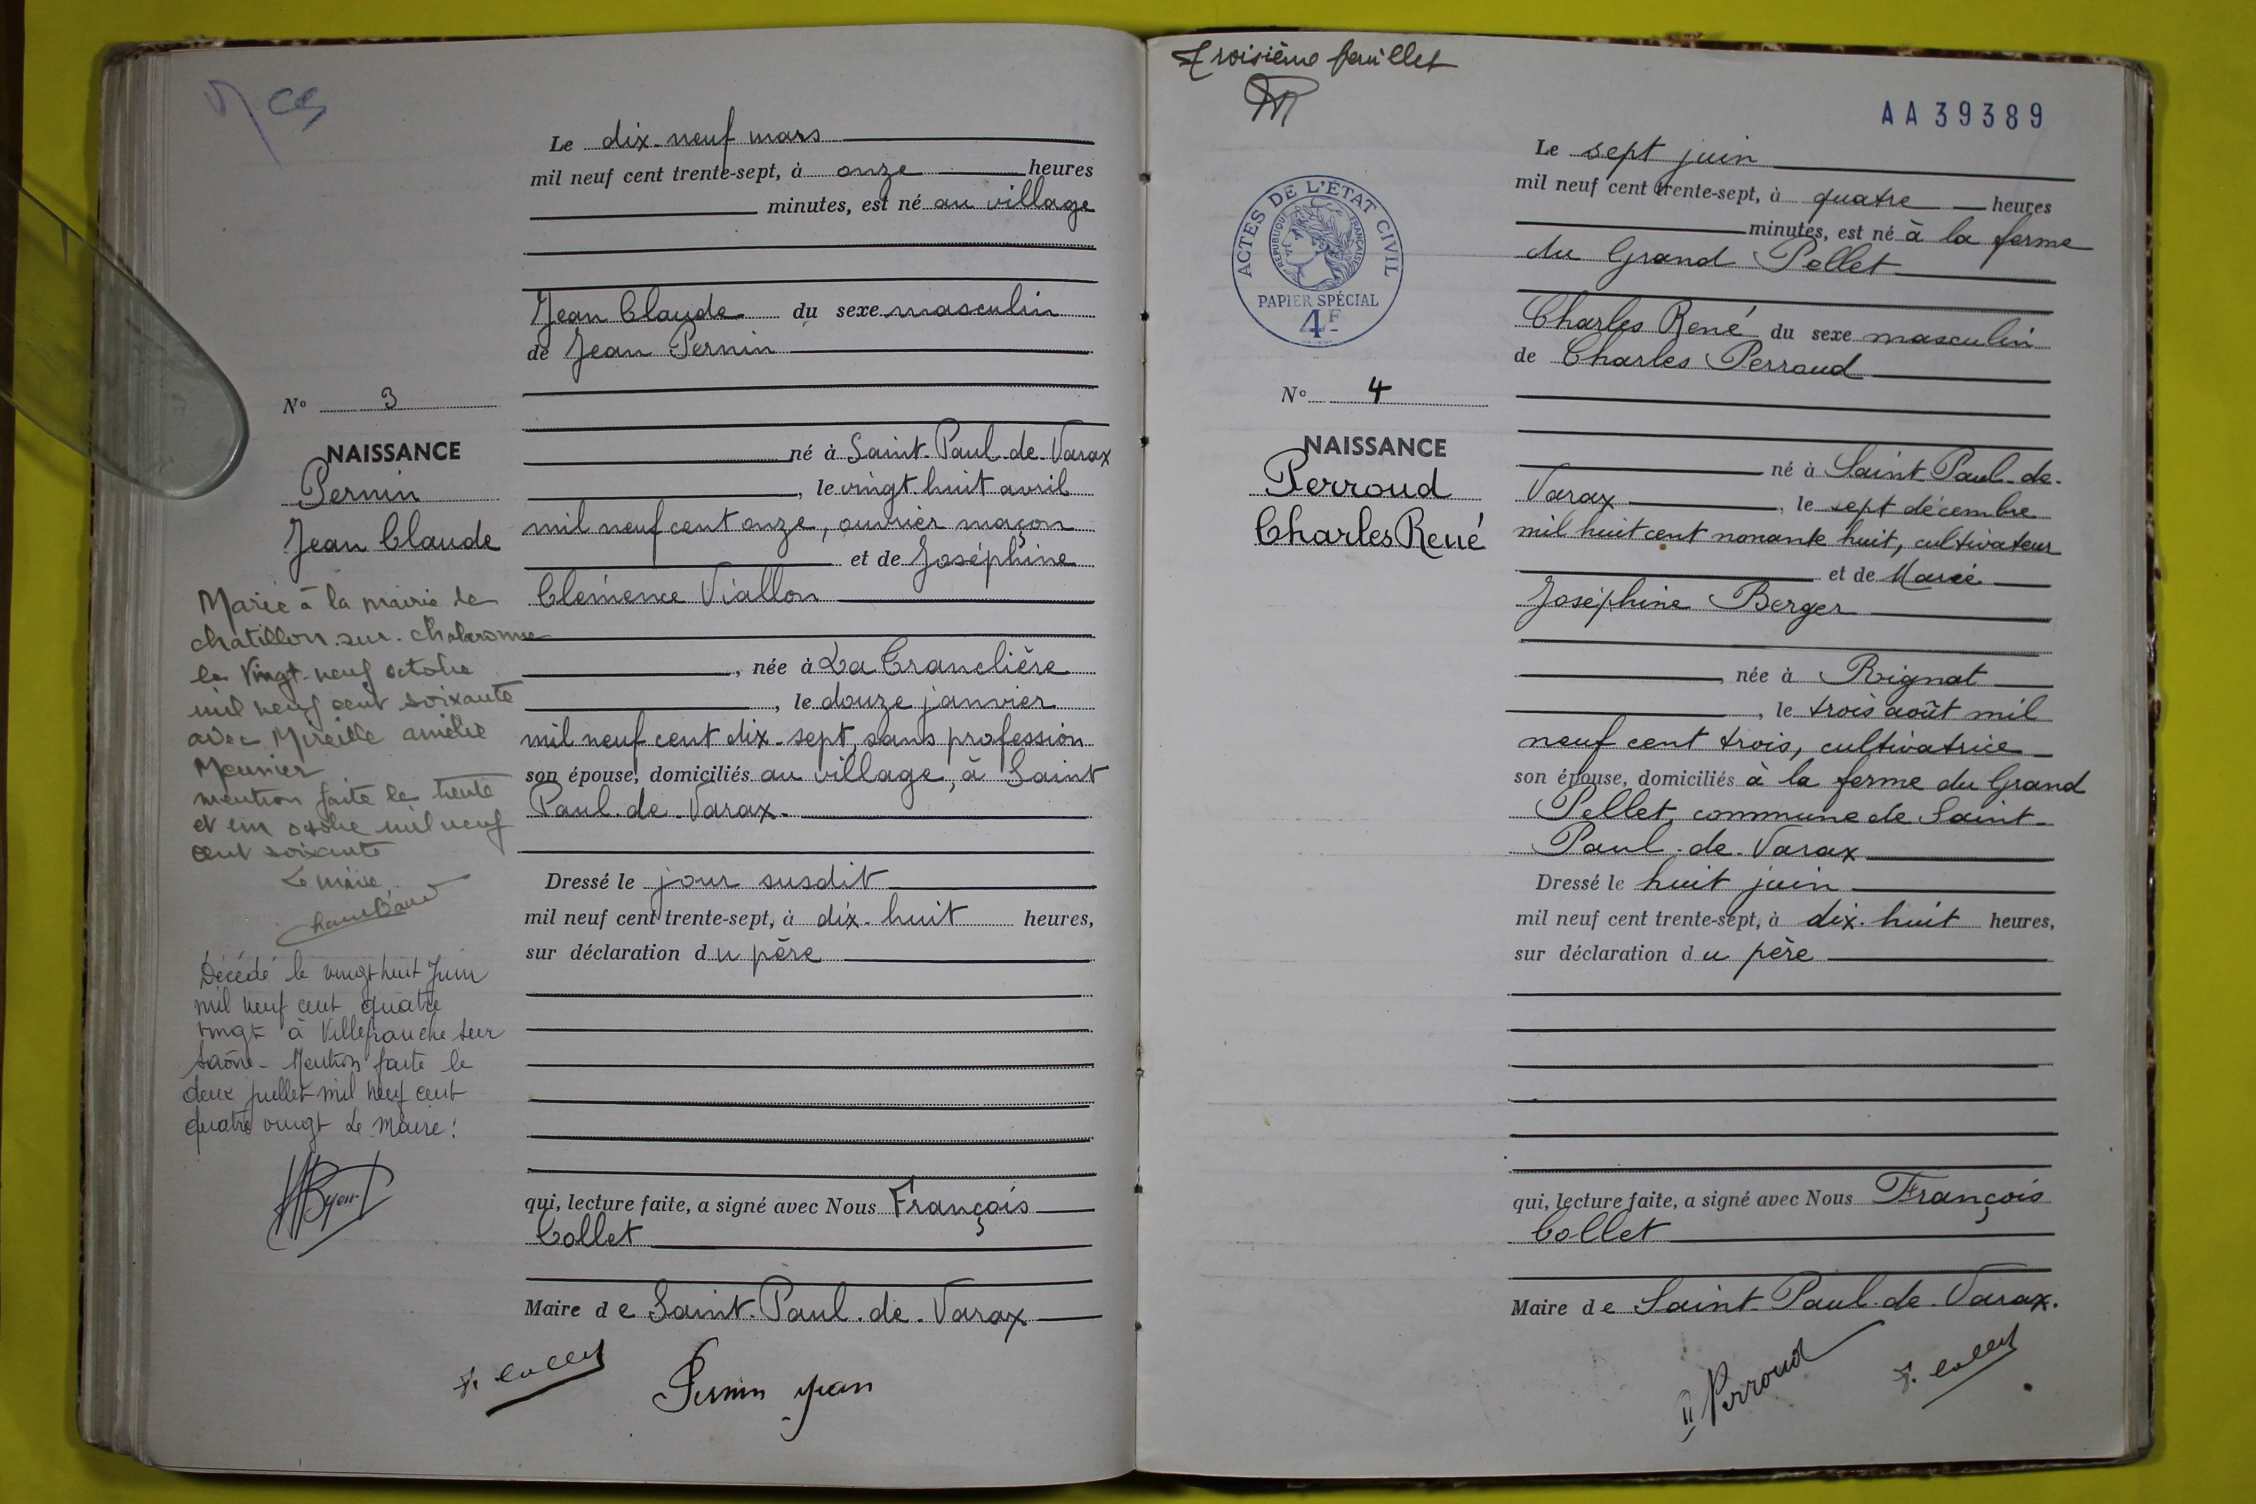 Le dix-neuf mars
mil neuf cent trente-sept, à onze heures
minutes, est né au village
Jean Claude du sexe masculin
de Jean Pernin
N° 3
NAISSANCE
Pernin
Jean Claude
né à Saint-Paul-de-Varax
, le vingt huit avril
mil neuf cent onze, ouvrier maçon
et de Joséphine
Clémence Viallon
, née à La Tranclière
, le douze janvier
mil neuf cent dix-sept, sans profession
son épouse, domiciliés au village, à Saint
Paul-de-Varax-
Dressé le jour susdit
mil neuf cent trente-sept, à dix-huit heures,
sur déclaration du père
qui, lecture faite, a signé avec Nous François
Collet
Maire de Saint-Paul-de-Varax
F. Collet
Pernin Jean
Marié à la mairie de
chatillon-sur-chalaronne
le vingt-neuf octobre
mil neuf cent soixante
avec Mireille amélie
Meunier
mention faite le trente
et un octobre mil neuf
cent soixante
Le maire
Décédé le vingt huit Juin
mil neuf cent quatre
vingt à Villefranche sur
Saône - Mention faite le
deux juillet mil neuf cent
quatre vingt Le Maire:
Troisième feuillet
AA 39389
ACTES DE L'ETAT CIVIL
REPUBLIQUE FRANÇAISE
PAPIER SPÉCIAL
4F
Le sept juin
mil neuf cent trente-sept, à quatre heures
minutes, est né à la ferme
du Grand Pellet
Charles René du sexe masculin
de Charles Perroud
N° 4
NAISSANCE
Perroud
Charles René
né à Saint-Paul-de-
Varax, le sept décembre
mil huit cent nonante huit, cultivateur
et de Marie
Joséphine Berger
, née à Rignat
, le trois août mil
neuf cent trois, cultivatrice
son épouse, domiciliés à la ferme du Grand
Pellet, commune de Saint-
Paul-de-Varax
Dressé le huit juin
mil neuf cent trente-sept, à dix-huit heures,
sur déclaration du père
qui, lecture faite, a signé avec Nous François
Collet
Maire de Saint-Paul-de-Varax.
Perroud
F. Collet